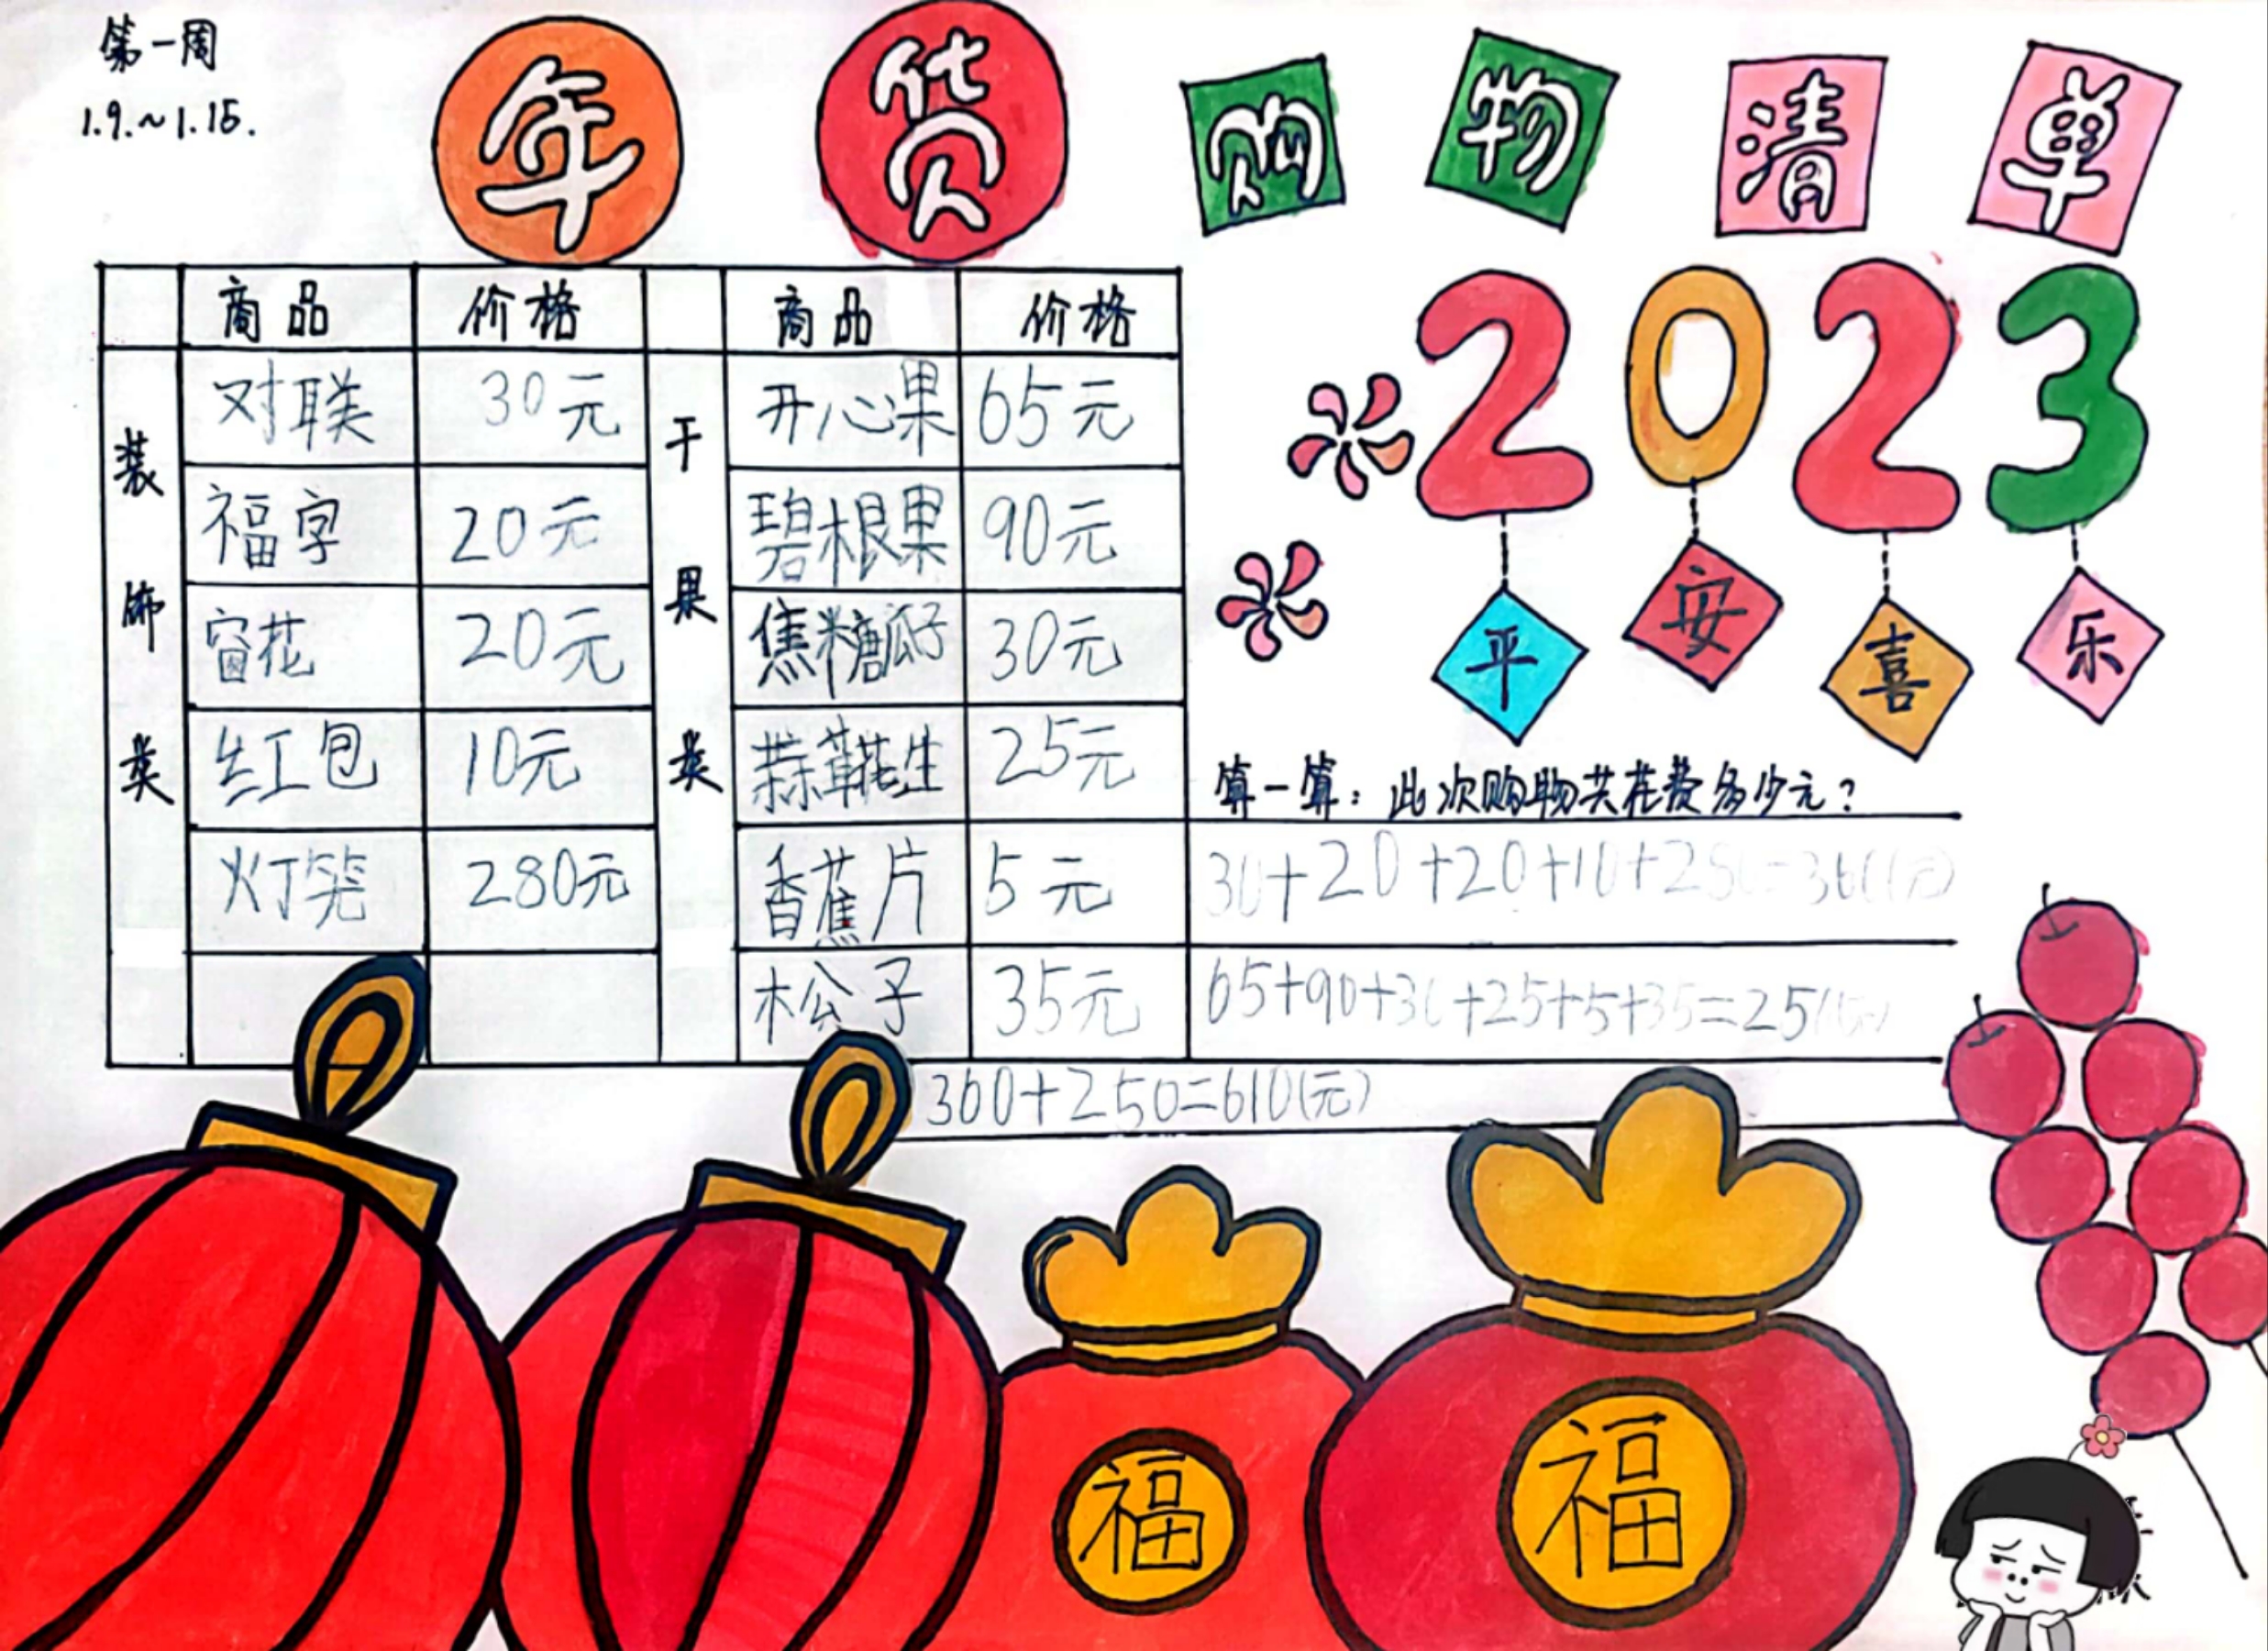 第一周
1.9.~1.15.
年货购物清单
商品 价格 商品 价格
装饰类
干果类
对联 30元 开心果 65元
福字 20元 碧根果 90元
窗花 20元 焦糖瓜子 30元
红包 10元 蒜蓉花生 25元
灯笼 280元 香蕉片 5元
松子 35元
2023
平安喜乐
算一算：此次购物共花费多少元？
30+20+20+10+280=360(元)
65+90+30+25+5+35=250(元)
360+250=610(元)
福
福